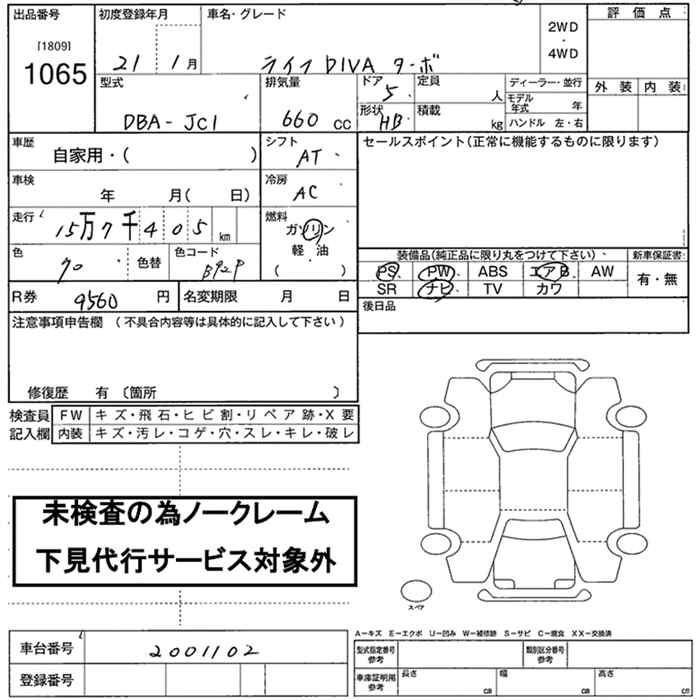 出品番号 初度登録年月 車名・グレード 評価点
[1809]
1065
21 1月 ライフ DIVA ターボ 2WD・4WD
型式 排気量 ドア 定員 ディーラー・並行 外装 内装
DBA-JC1 660cc 5 人 モデル年式 年
形状 積載 ハンドル 左・右
HB kg
車歴 シフト セールスポイント(正常に機能するものに限ります)
自家用・( ) AT
車検 冷房
年 月( 日) AC
走行 燃料
15万7千405km ガソリン
軽・油
( )
色 色替 色コード 装備品(純正品に限り丸をつけて下さい) 新車保証書
クロ B92P PS PW ABS エアB AW 有・無
SR ナビ TV カワ
R券 9560円 名変期限 月 日 後日品
注意事項申告欄 (不具合内容等は具体的に記入して下さい)
修復歴 有 〔箇所 〕
検査員 FW キズ・飛石・ヒビ割・リペア跡・X要
記入欄 内装 キズ・汚レ・コゲ・穴・スレ・キレ・破レ
未検査の為ノークレーム
下見代行サービス対象外
スペア
A-キズ E-エクボ U-凹み W-補修跡 S-サビ C-腐食 XX-交換済
車台番号 2001102 型式指定番号 参考 類別区分番号 参考
登録番号 車庫証明用 参考 長さ cm 幅 cm 高さ cm